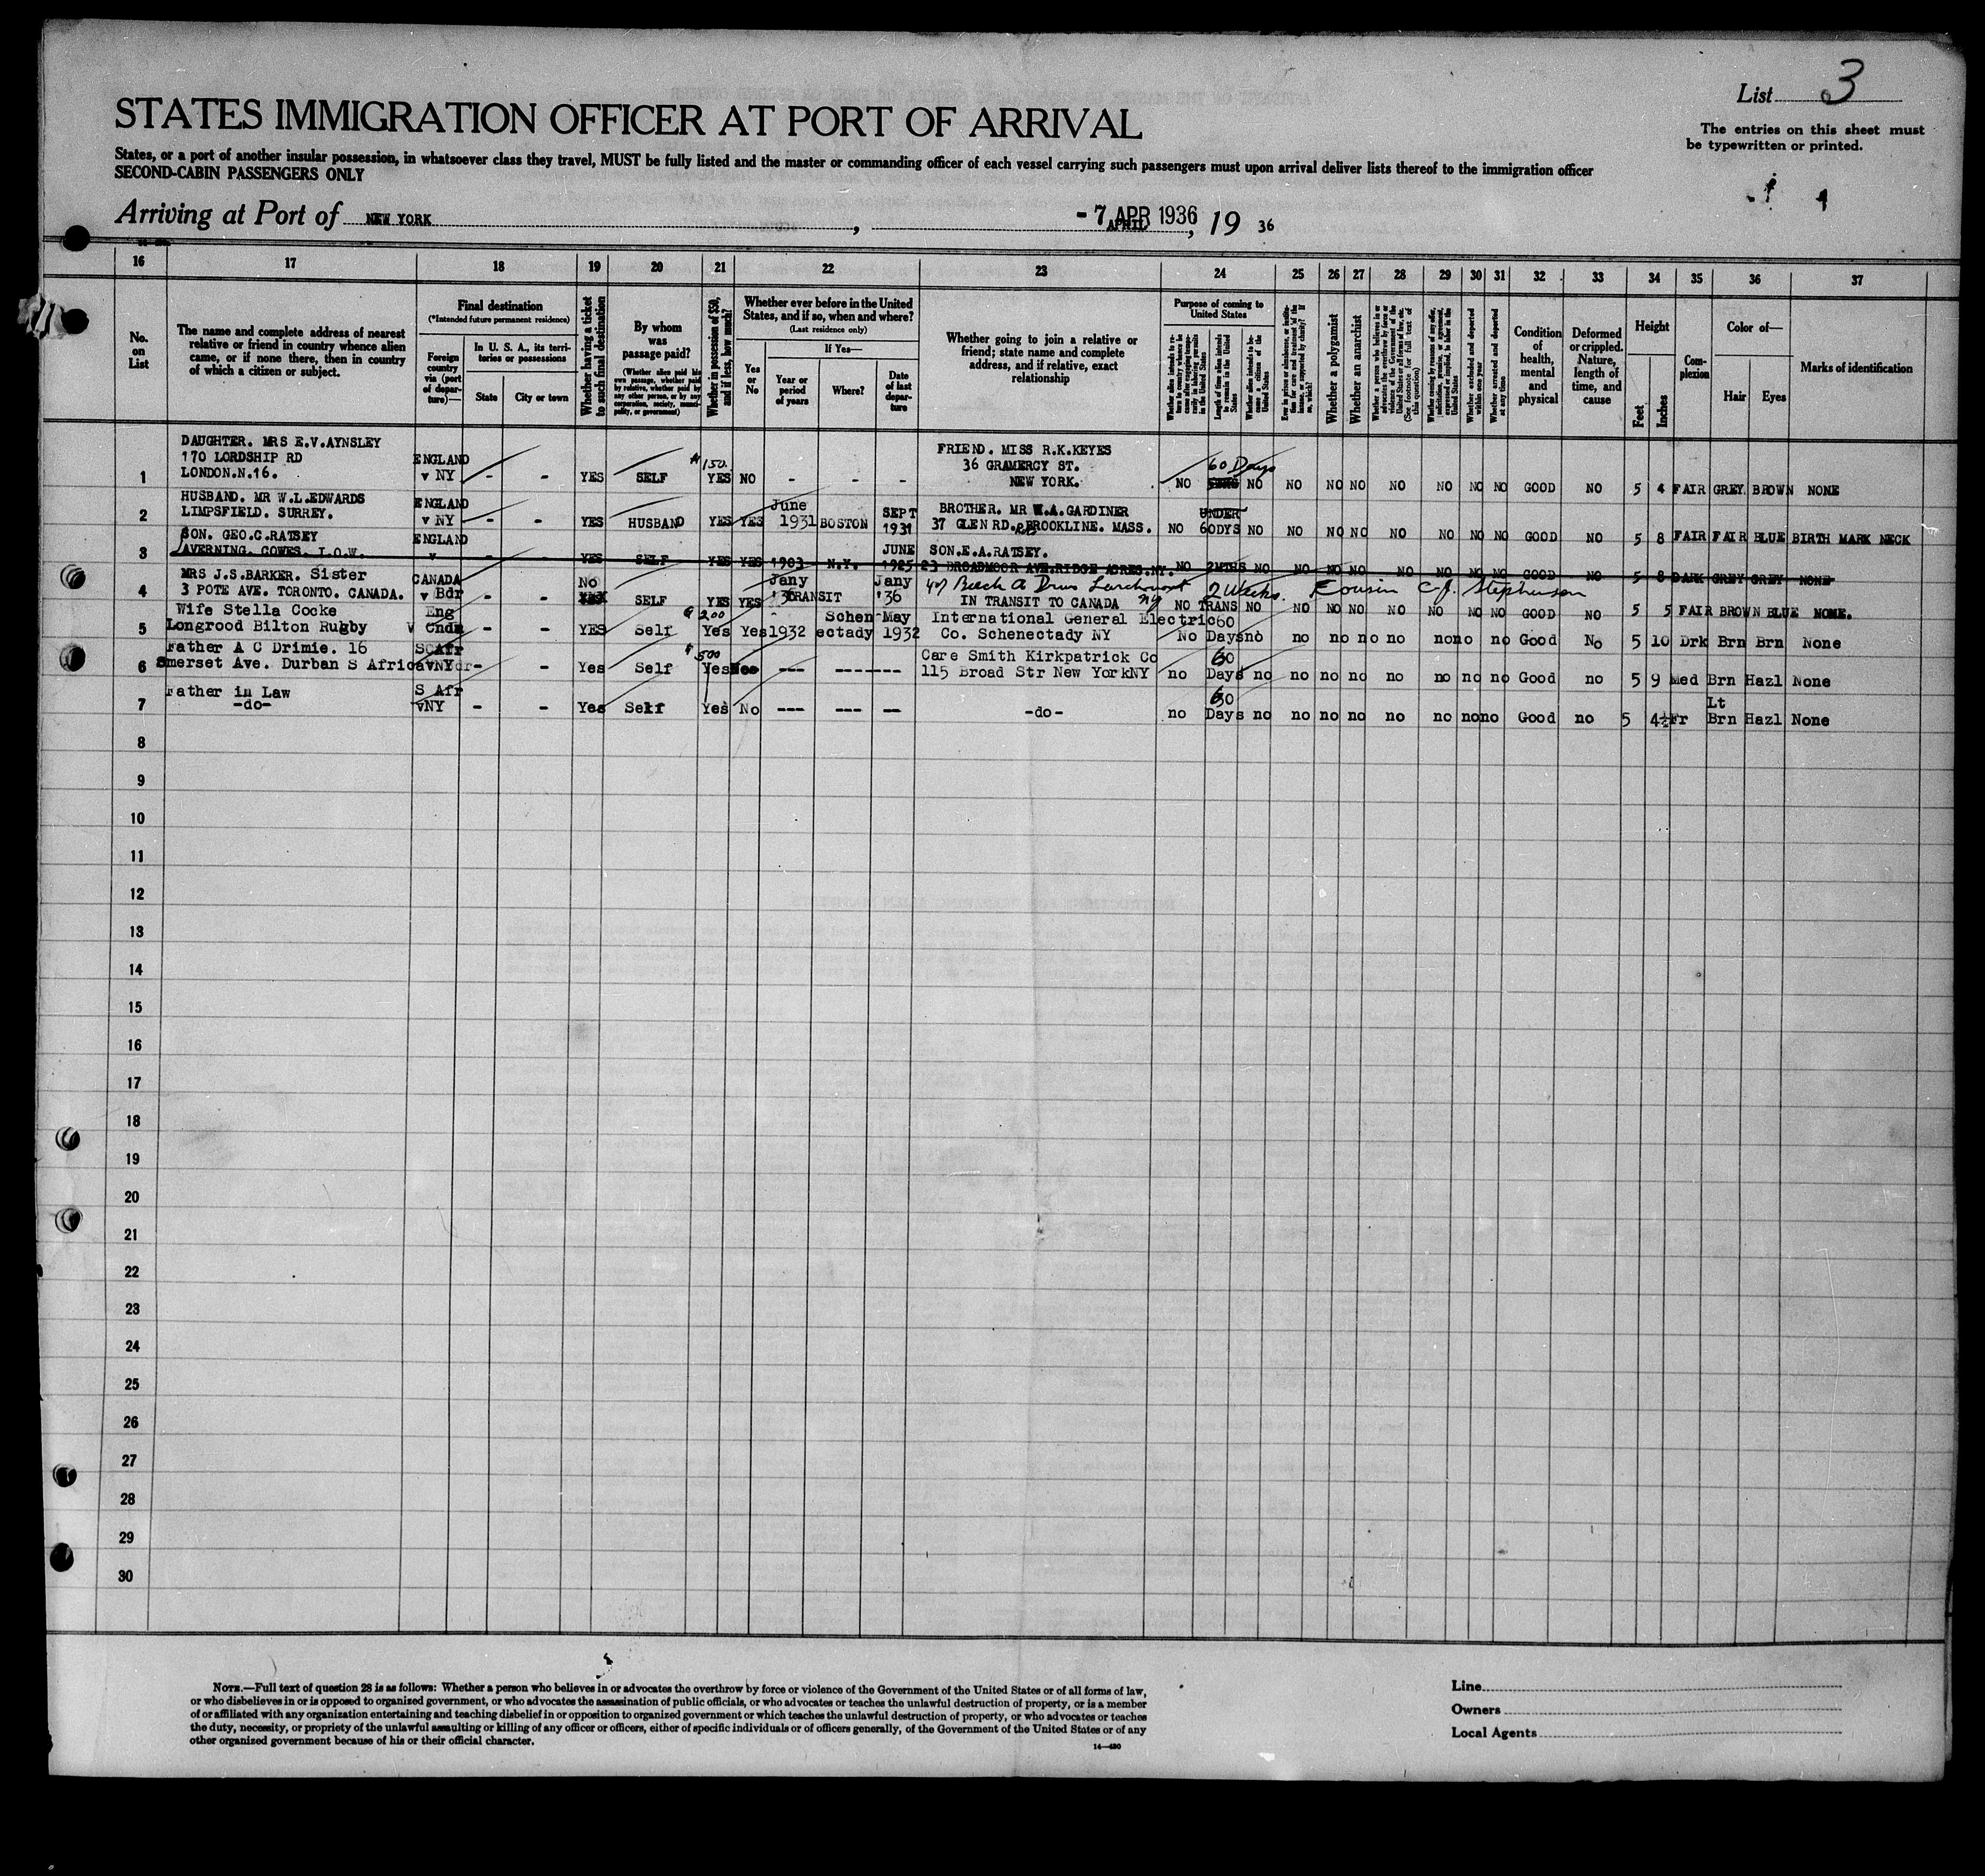 List 3
STATES IMMIGRATION OFFICER AT PORT OF ARRIVAL
The entries on this sheet must
be typewritten or printed.
States, or a port of another insular possession, in whatsoever class they travel, MUST be fully listed and the master or commanding officer of each vessel carrying such passengers must upon arrival deliver lists thereof to the immigration officer
SECOND-CABIN PASSENGERS ONLY
Arriving at Port of NEW YORK, -7 APR 1936 APRIL, 19 36
16 17 18 19 20 21 22 23 24 25 26 27 28 29 30 31 32 33 34 35 36 37
No. on List
The name and complete address of nearest relative or friend in country whence alien came, or if none there, then in country of which a citizen or subject.
Final destination
(*Intended future permanent residence)
Foreign country via (port of departure)—
In U. S. A., its territories or possessions
State
City or town
Whether having a ticket to such final destination
By whom was passage paid?
(Whether alien paid his own passage, whether paid by relative, whether paid by any other person, or by any corporation, society, municipality, or government)
Whether in possession of $50, and if less, how much?
Whether ever before in the United States, and if so, when and where?
(Last residence only)
Yes or No
If Yes—
Year or period of years
Where?
Date of last departure
Whether going to join a relative or friend; state name and complete address, and if relative, exact relationship
Purpose of coming to United States
Length of time alien intends to remain in the United States
Whether alien intends to become a citizen of the United States
Whether a polygamist
Whether an anarchist
Whether excluded and deported within one year
Whether arrested and deported at any time
Condition of health, mental and physical
Deformed or crippled. Nature, length of time, and cause
Height
Feet
Inches
Complexion
Color of—
Hair
Eyes
Marks of identification
1 DAUGHTER. MRS E.V.AYNSLEY 170 LORDSHIP RD LONDON.N.16. ENGLAND v NY - - YES SELF $150. YES NO - - - FRIEND. MISS R.K.KEYES 36 GRAMERCY ST. NEW YORK. NO 60 Days NO NO NO NO NO NO NO NO GOOD NO 5 4 FAIR GREY BROWN NONE
2 HUSBAND. MR W.L.EDWARDS LIMPSFIELD. SURREY. ENGLAND v NY - - YES HUSBAND YES YES June 1931 BOSTON SEPT 1931 BROTHER. MR W.A.GARDINER 37 GLEN RD. BROOKLINE. MASS. NO UNDER 60DYS NO NO NO NO NO NO NO NO GOOD NO 5 8 FAIR FAIR BLUE BIRTH MARK NECK
3 SON. GEO.C.RATSEY AVERNING. COWES. I.O.W. ENGLAND v - - YES SELF YES YES 1903 N.Y. JUNE 1925 SON.E.A.RATSEY. 23 BROADMOOR AVE.RIDGE ACRES.NY. NO 2MTHS NO NO NO NO NO NO NO NO GOOD NO 5 8 DARK GREY GREY NONE
4 MRS J.S.BARKER. Sister 3 POTE AVE. TORONTO. CANADA. CANADA v Bdr - - No SELF YES YES Jany '36 TRANSIT Jany '36 47 Beech Drive Larchmont NY 2 Weeks. Cousin C.J. Stephenson IN TRANSIT TO CANADA NO TRANS NO NO NO NO NO NO NO NO GOOD NO 5 5 FAIR BROWN BLUE NONE.
5 Wife Stella Cocke Longrood Bilton Rugby Eng V Cnda - - YES Self $200 Yes Yes 1932 Schenectady May 1932 International General Electric Co. Schenectady NY No 60 Days no no no no no no no no Good No 5 10 Drk Brn Brn None
6 Father A C Drimie. 16 Smerset Ave. Durban S Africa S Afr vNY - - Yes Self $500 Yes --- --- --- Care Smith Kirkpatrick Co 115 Broad Str New York NY no 60 Days no no no no no no no no Good no 5 9 Med Brn Hazl None
7 Father in Law -do- S Afr vNY - - Yes Self Yes No --- --- -- -do- no 60 Days no no no no no no no no Good no 5 4½ Fr Lt Brn Hazl None
8
9
10
11
12
13
14
15
16
17
18
19
20
21
22
23
24
25
26
27
28
29
30
NOTE.—Full text of question 28 is as follows: Whether a person who believes in or advocates the overthrow by force or violence of the Government of the United States or of all forms of law,
or who disbelieves in or is opposed to organized government, or who advocates the assassination of public officials, or who advocates or teaches the unlawful destruction of property, or is a member
of or affiliated with any organization entertaining and teaching disbelief in or opposition to organized government or which teaches the unlawful destruction of property, or who advocates or teaches
the duty, necessity, or propriety of the unlawful assaulting or killing of any officer or officers, either of specific individuals or of officers generally, of the Government of the United States or of any
other organized government because of his or their official character.
14—430
Line
Owners
Local Agents